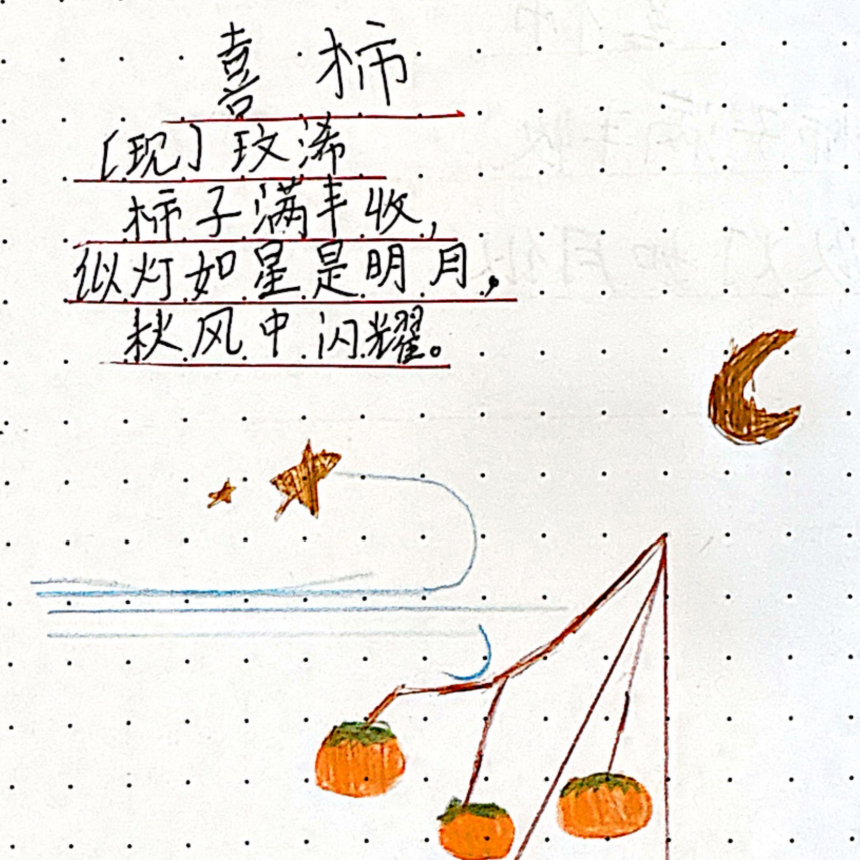 喜柿
[现]玟浠
柿子满丰收,
似灯如星是明月,
秋风中闪耀。